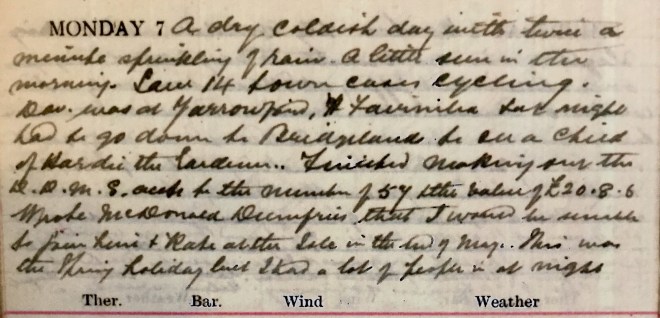 MONDAY 7 A dry coldish day with twice a
minute sprinkling of rain. A little sun in the
morning. Saw 14 town cases cycling.
Dav. was at Yarrowford, & last night
had to go down to Bridgeland to see a child
of Hardie the Gardener.. Finished making out the
D. D. M. S. accts to the number of 57 & the value of £20.8.6
Wrote McDonald Dumfries that I would be
to join him & Kate at the Isle in the end of May.. This was
the Spring holiday but I had a lot of people in at night
Ther. Bar. Wind Weather